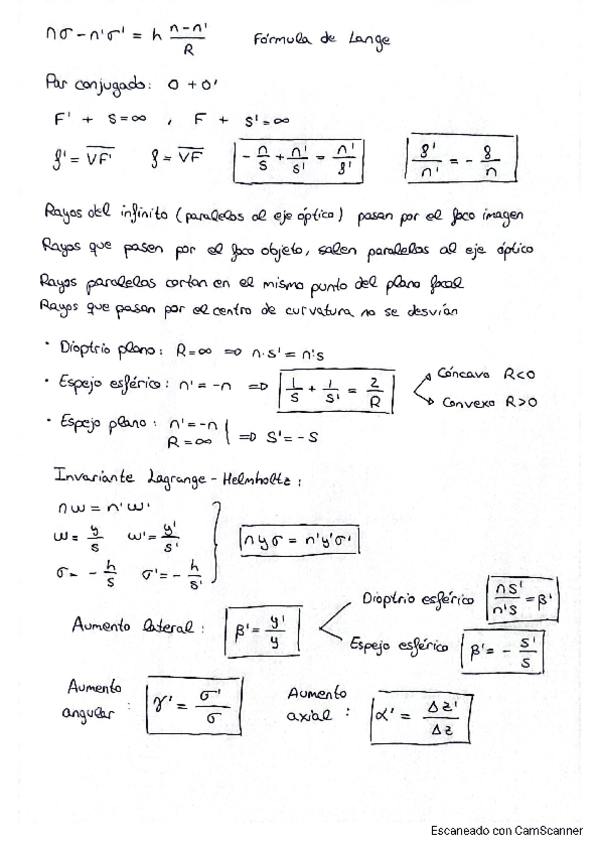 nσ - n'σ' = h (n-n')/R   Fórmula de Lange
Par conjugado: O + O'
F' + s=∞ , F + s'=∞
f' = V̅F̅'̅   f = V̅F̅   -n/s + n'/s' = n'/f'   f'/n' = - f/n
Rayos del infinito (paralelos al eje óptico) pasan por el foco imagen
Rayos que pasen por el foco objeto, salen paralelas al eje óptico
Rayos paralelas cortan en el mismo punto del plano focal
Rayos que pasan por el centro de curvatura no se desvían
· Dioptrio plano: R=∞ => n·s' = n's
· Espejo esférico: n' = -n => 1/s + 1/s' = 2/R   Cóncavo R<0
Convexo R>0
· Espejo plano: n' = -n
R = ∞ => s' = -s
Invariante Lagrange - Helmholtz:
nω = n'ω'
ω = y/s   ω' = y'/s'   nyσ = n'y'σ'
σ = - h/s   σ' = - h/s'
Aumento lateral: β' = y'/y   Dioptrio esférico ns'/n's = β'
Espejo esférico β' = - s'/s
Aumento angular: γ' = σ'/σ   Aumento axial: α' = Δz'/Δz
Escaneado con CamScanner